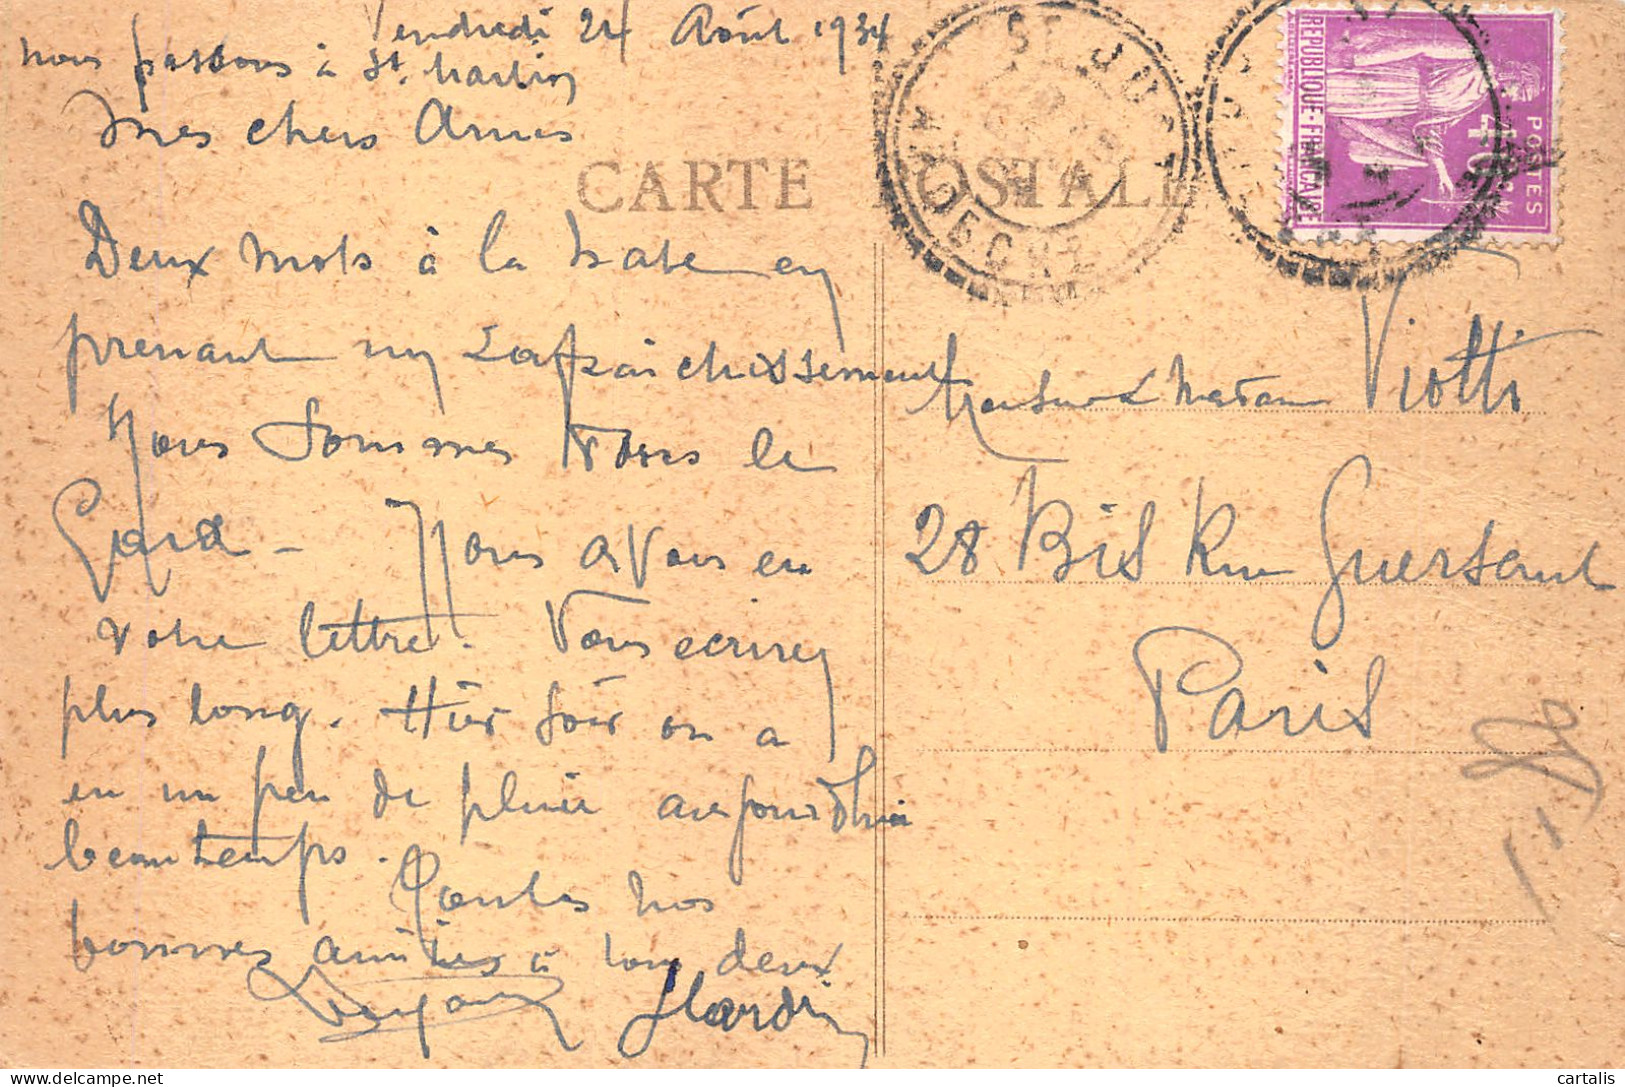 Vendredi 24 Août 1934
nous passons à St Martin
Mes chers Amis
CARTE POSTALE
ST JUST
ARDECHE
REPUBLIQUE FRANÇAISE
POSTES
40c
Deux mots à la hate en
prenant un rafraichissement
Nous sommes dans le
Gard - Nous avons eu
votre lettre. Vous écrirez
plus long. Hier soir on a
eu un peu de pluie aujourd'hui
beau temps.
Toutes nos
bonnes amitiés à tous deux
Hardy
Monsieur & Madame Viotti
28 Bis Rue Guersant
Paris
cartalis